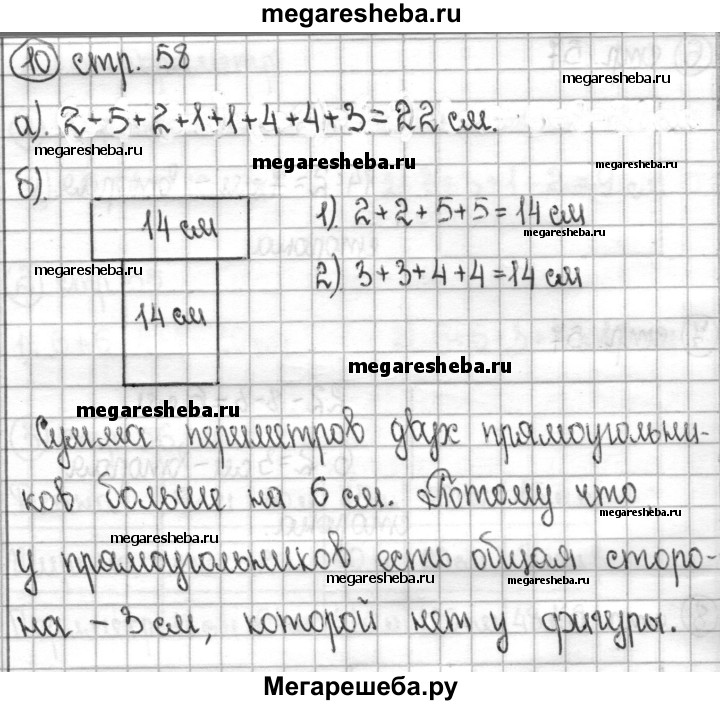 megaresheba.ru
10 стр. 58
megaresheba.ru
а). 2+5+2+1+1+4+4+3=22 см.
megaresheba.ru
megaresheba.ru
megaresheba.ru
б).
14 см
1). 2+2+5+5=14 см
megaresheba.ru
megaresheba.ru
2). 3+3+4+4=14 см
14 см
megaresheba.ru
megaresheba.ru
Сумма периметров двух прямоугольни-
ков больше на 6 см. Потому что
megaresheba.ru
megaresheba.ru
у прямоугольников есть общая сторо-
megaresheba.ru
megaresheba.ru
на - 3 см, которой нет у фигуры.
Мегарешеба.ру